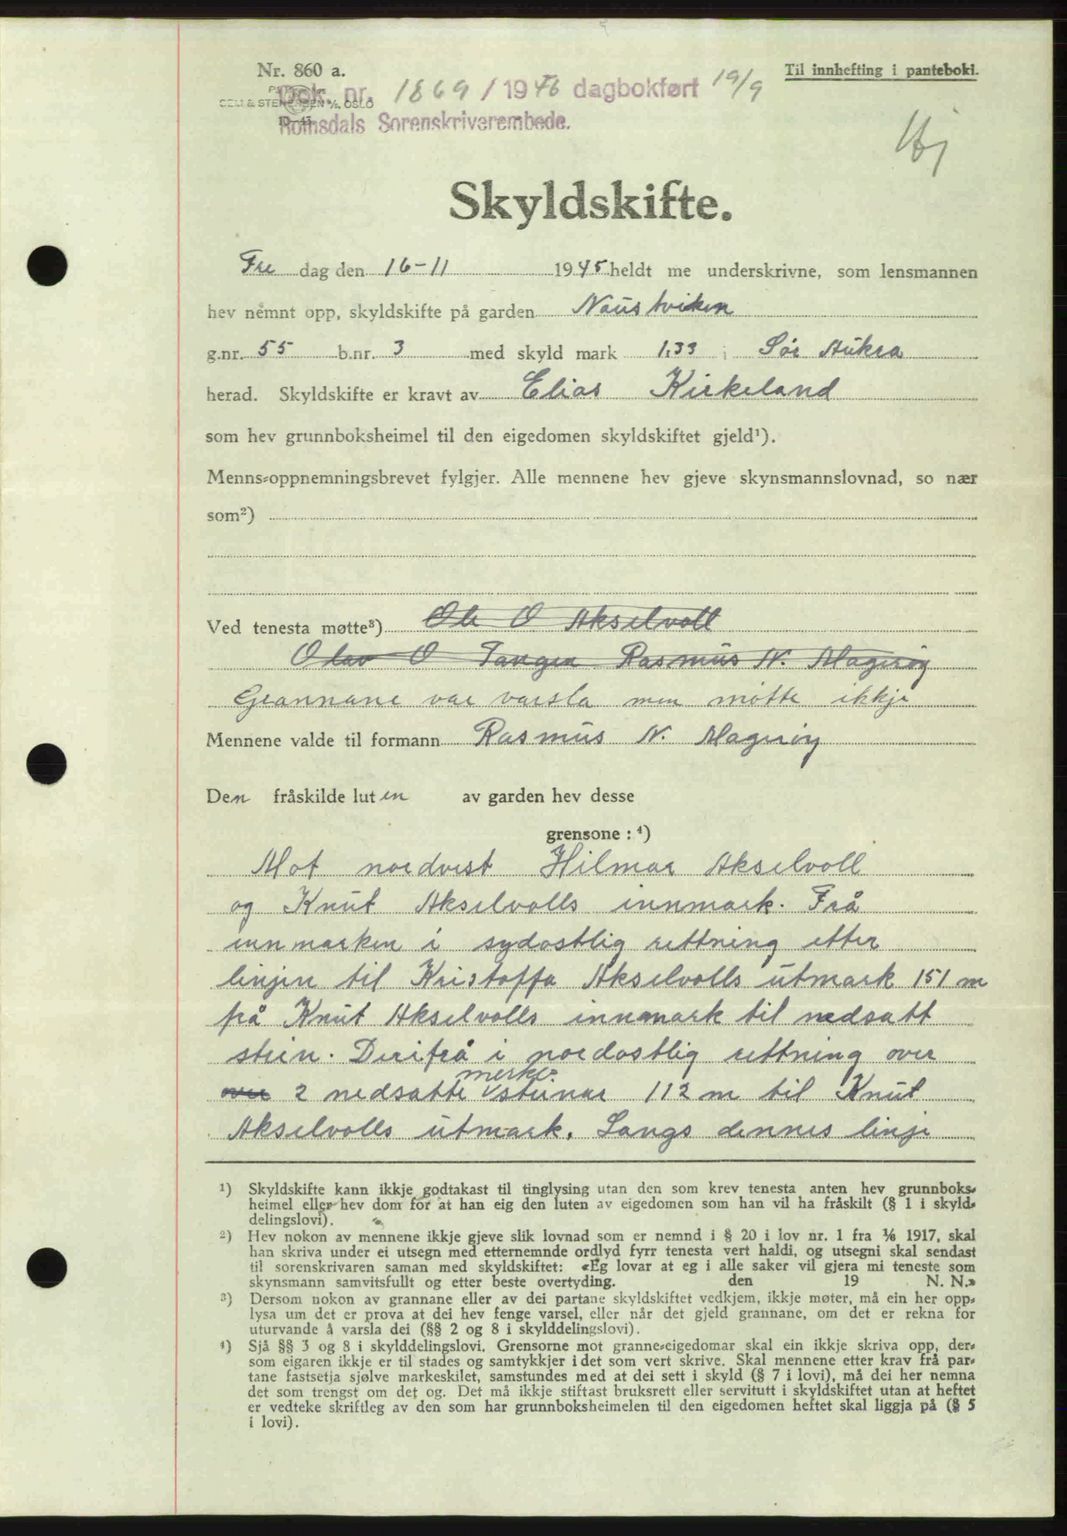 Nr. 860 a.
Til innhefting i panteboki.
Dok. nr. 1869 / 1946 dagbokført 19/9
SEM & STENERSEN A/S, OSLO
10-43
Romsdals Sorenskriverembede.
Skyldskifte.
Fre dag den 16-11 1945 heldt me underskrivne, som lensmannen
hev nemnt opp, skyldskifte på garden Naustviken
g.nr. 55 b.nr. 3 med skyld mark 1,33 i Sør Aukra
herad. Skyldskifte er kravt av Elias Kirkeland
som hev grunnboksheimel til den eigedomen skyldskiftet gjeld¹).
Menns-oppnemningsbrevet fylgjer. Alle mennene hev gjeve skynsmannslovnad, so nær
som²)
Ved tenesta møtte³) Ole O Akselvoll
Olav O Tangen Rasmus N. Magerøy
Grannane var varsla men møtte ikkje
Mennene valde til formann Rasmus N. Magerøy
Den fråskilde luten av garden hev desse
grensone : ⁴)
Mot nordvest Hilmar Akselvoll
og Knut Akselvolls innmark. Frå
innmarken i sydøstlig rettning etter
linjen til Kristoffa Akselvolls utmark 151 m
frå Knut Akselvolls innmark til nedsatt
stein. Derifrå i nordøstlig rettning over
over 2 nedsatte merkesteinar 112 m til Knut
Akselvolls utmark. Langs dennes linje
¹) Skyldskifte kann ikkje godtakast til tinglysing utan den som krev tenesta anten hev grunnboks-
heimel eller hev dom for at han eig den luten av eigedomen som han vil ha fråskilt (§ 1 i skyld-
delingslovi).
²) Hev nokon av mennene ikkje gjeve slik lovnad som er nemnd i § 20 i lov nr. 1 fra 1/6 1917, skal
han skriva under ei utsegn med etternemnde ordlyd fyrr tenesta vert haldi, og utsegni skal sendast
til sorenskrivaren saman med skyldskiftet: «Eg lovar at eg i alle saker vil gjera mi teneste som
skynsmann samvitsfullt og etter beste overtyding. den 19 N. N.»
³) Dersom nokon av grannane eller av dei partane skyldskiftet vedkjem, ikkje møter, må ein her opp-
lysa um det er prova at dei hev fenge varsel, eller når det gjeld grannane, om det er rekna for
uturvande å varsla dei (§§ 2 og 8 i skylddelingslovi).
⁴) Sjå §§ 3 og 8 i skylddelingslovi. Grensorne mot granne-eigedomar skal ein ikkje skriva opp, der-
som eigaren ikkje er til stades og samtykkjer i det som vert skrive. Skal mennene etter krav frå par-
tane fastsetja sjølve markeskilet, samstundes med at dei sett i skyld (§ 7 i lovi), må dei her nemna
det som trengst om det og. Det må ikkje stiftast bruksrett eller servitutt i skyldskiftet utan at heftet
er vedteke skriftleg av den som har grunnboksheimelen til den eigedomen heftet skal liggja på (§ 5
i lovi).